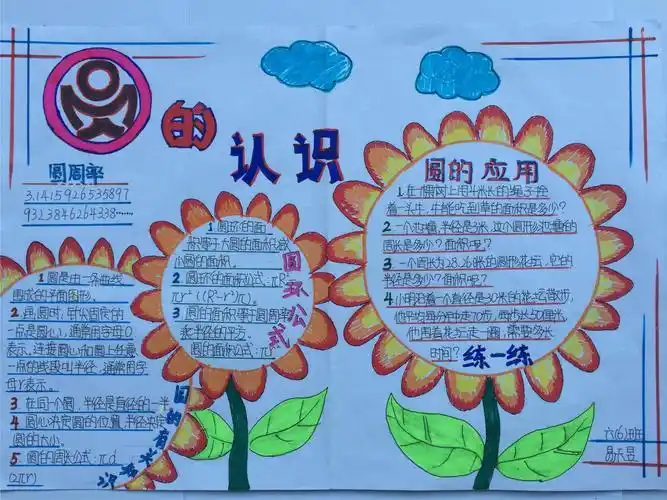 的
认识
圆周率
3.1415926535897
9323846264338……
1 圆是由一条曲线
围成的平面图形。
2 画圆时,针尖固定的
一点是圆心,通常用字母O
表示,连接圆心和圆上任意
一点的线段叫半径,通常用字
母r表示。
3 在同一个圆,半径是直径的一半
4 圆心决定圆的位置,半径决定
圆的大小。
5 圆的周长公式:πd
(2πr)
圆的有关
1 圆环的面
积等于大圆的面积减
小圆的面积。
2 圆环的面积公式:πR²-
πr²((R²-r²)π)
3 圆的面积等于圆周率
乘半径的平方。
圆的面积公式:πr²
圆环公式
圆的应用
1 在一棵树上用4米长的绳子拴
着一头牛,牛能吃到草的面积是多少?
2 一个池塘,半径是3米,这个圆形池塘的
周长是多少?面积呢?
3 一个周长为28.26米的圆形花坛,它的
半径是多少?面积呢?
4 小明沿着一个直径是30米的花坛散步,
他平均每分钟走70步,每步长50厘米,
他围着花坛走一圈,需要多长
时间?
练一练
六(6)班
易天昱